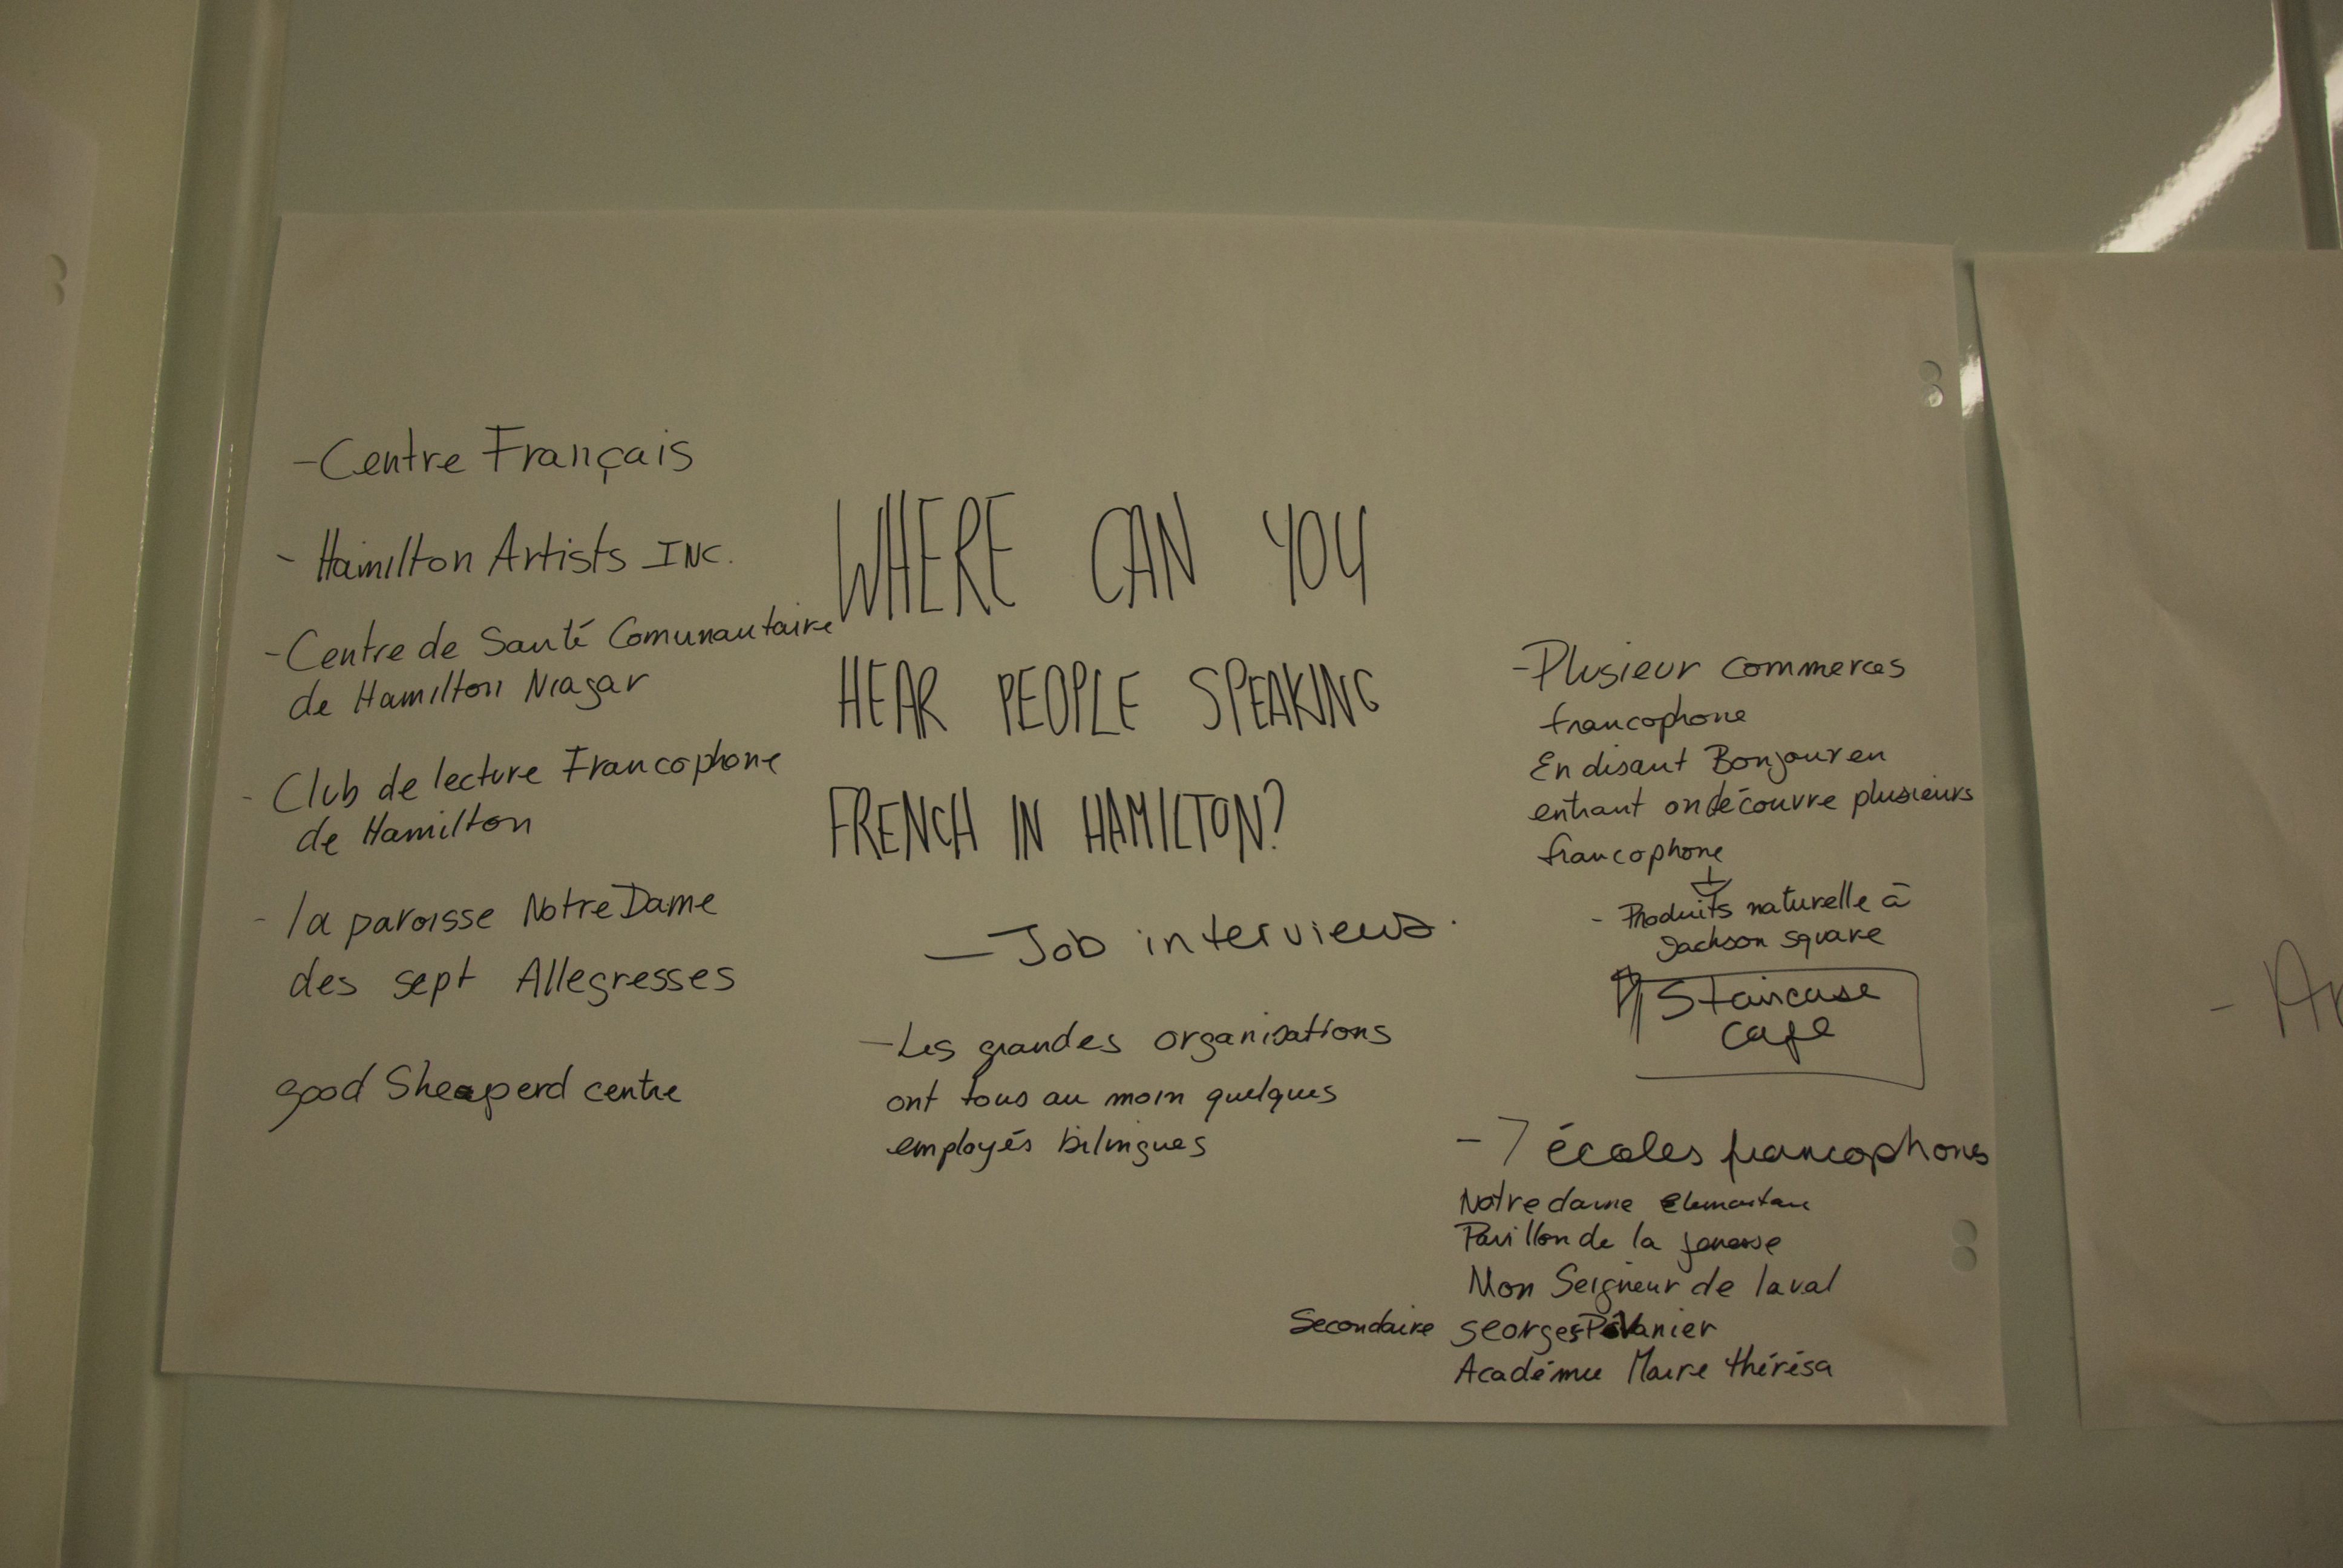 -Centre Français
- Hamilton Artists INC.
-Centre de Santé Comunautaire
de Hamilton Niagar
- Club de lecture Francophone
de Hamilton
- la paroisse Notre Dame
des sept Allegresses
good Sheaperd centre
WHERE CAN YOU
HEAR PEOPLE SPEAKING
FRENCH IN HAMILTON?
- Job interviews.
- Les grandes organisations
ont tous au moin quelques
employés bilingues
-Plusieur commerces
francophone
En disant Bonjour en
entrant on découvre plusieurs
francophone
- Produits naturelle à
Jackson square
Staircase
cafe
- 7 écoles francophones
Notre dame
Pavillon de la
Mon Seigneur de laval
Secondaire Georges P Vanier
Académie Marie thérésa